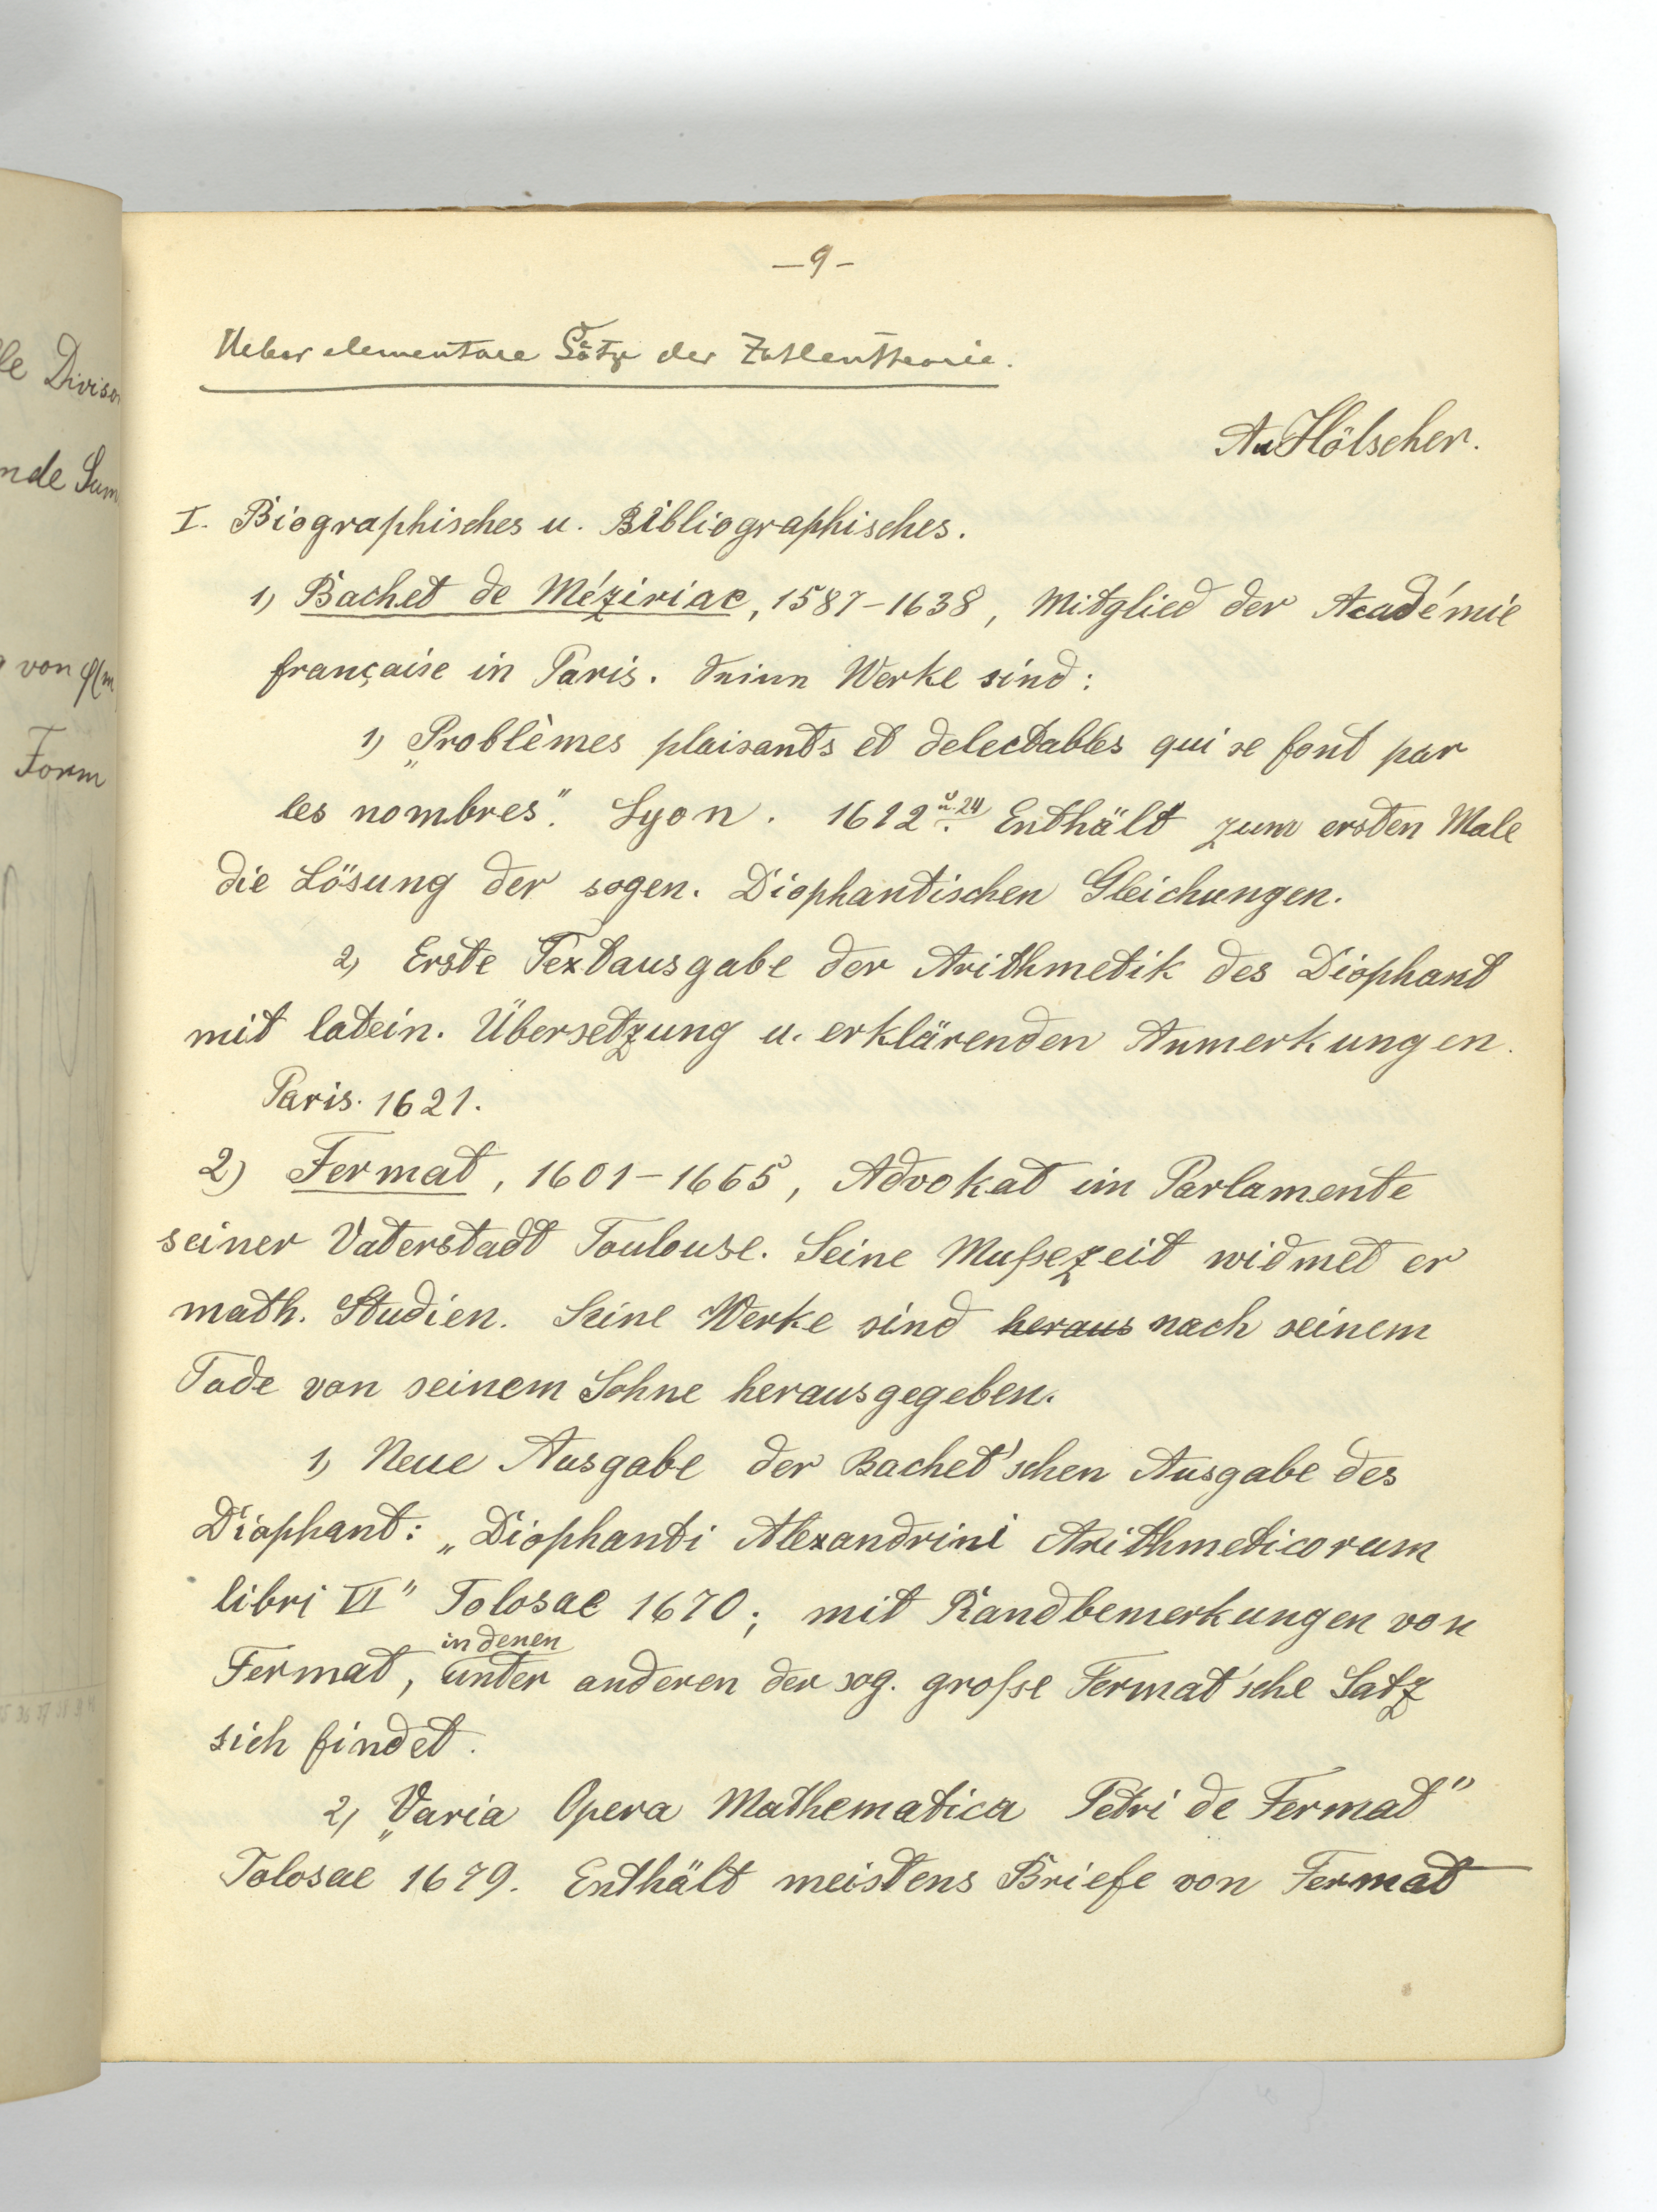 le Divisor
nde Sum
von φ(m
Form
— 9 —
Ueber elementare Sätze der Zahlentheorie.
Au Hölscher.
I. Biographisches u. Bibliographisches.
1) Bachet de Méziriac, 1587–1638, Mitglied der Académie
française in Paris. Seine Werke sind:
1) „Problèmes plaisants et delectables qui se font par
les nombres“. Lyon. 1612 u. 24. Enthält zum ersten Male
die Lösung der sogen. Diophantischen Gleichungen.
2) Erste Textausgabe der Arithmetik des Diophant
mit latein. Übersetzung u. erklärenden Anmerkungen.
Paris. 1621.
2) Fermat, 1601–1665, Advokat im Parlamente
seiner Vaterstadt Toulouse. Seine Mußezeit widmet er
math. Studien. Seine Werke sind heraus nach seinem
Tode von seinem Sohne herausgegeben.
1) Neue Ausgabe der Bachet'schen Ausgabe des
Diophant: „Diophanti Alexandrini Arithmeticorum
libri VI“ Tolosae 1670; mit Randbemerkungen von
in denen
Fermat, unter anderen der sog. große Fermat'sche Satz
sich findet.
2) „Varia Opera Mathematica Petri de Fermat“
Tolosae 1679. Enthält meistens Briefe von Fermat